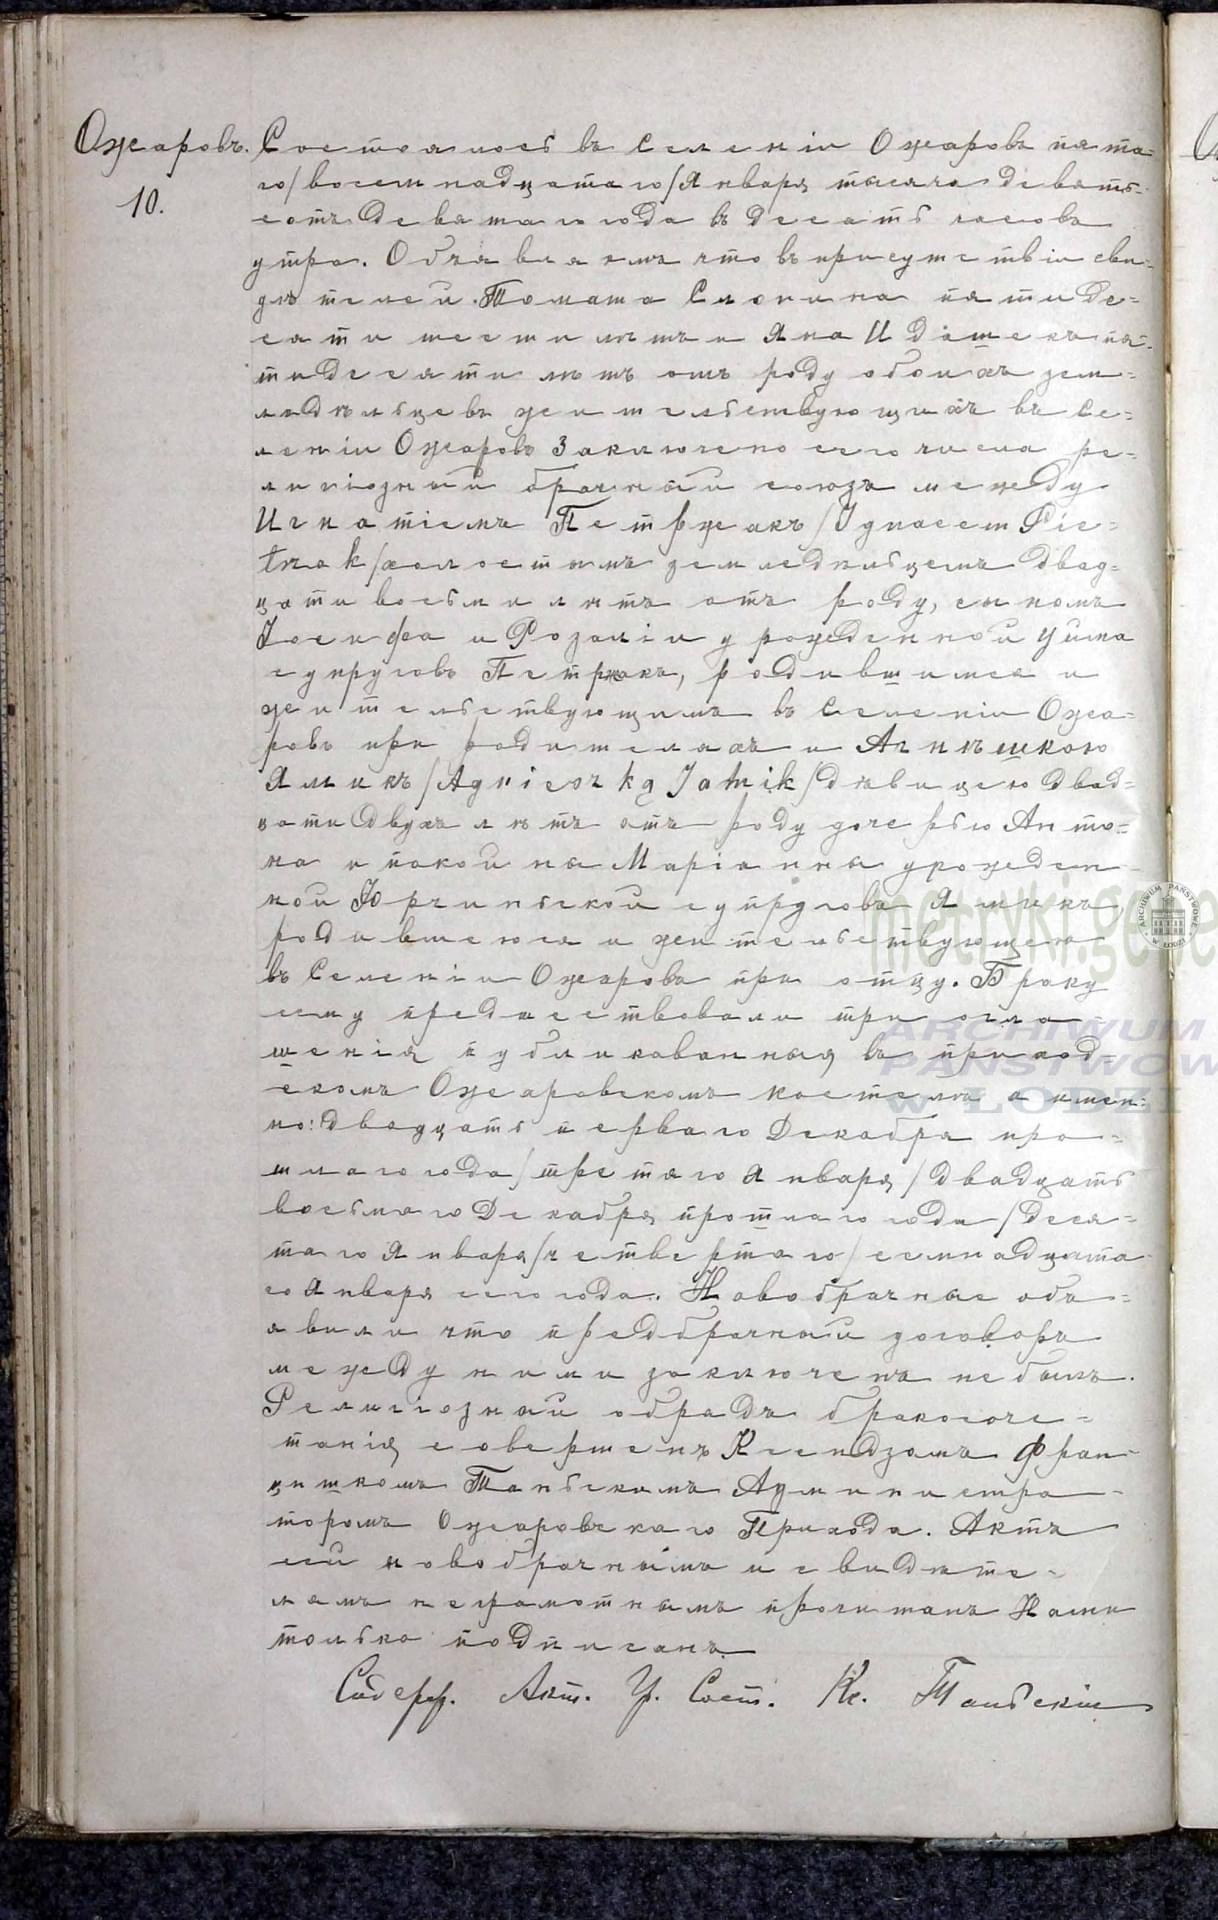 Ожаровъ.
10.
Состоялось въ селеніи Ожаровъ пята-
го/восемнадцатаго/Января тысяча девять-
сотъ девятаго года въ десять часовъ
утра. Объявляемъ что въ присутствіи сви-
дѣтелей. Томаша Слопина пятиде-
сяти шести лѣтъ и Яна Идашекъ пя-
тидесяти лѣтъ отъ роду обоихъ зем-
ледѣльцевъ жительствующихъ въ се-
леніи Ожаровъ Заключено сего числа ре-
лигіозный брачный союзъ между
Игнатіемъ Петржакъ/Ignacem Pie-
trzak/холостымъ земледѣльцемъ двад-
цати восьми лѣтъ отъ роду, сыномъ
Іосифа и Розаліи урожденной
супруговъ Петржакъ, родившимся и
жительствующимъ въ селеніи Ожа-
ровъ при родителяхъ и Агнѣшкою
Ямикъ/Agnieszką/дѣвицею двад-
цати двухъ лѣтъ отъ роду дочерью Анто-
на и покойны Маріанны урожден-
ной супруговъ Ямикъ
родившеюся и жительствующею
въ Селеніи Ожаровъ при отцу. Браку
сему предшествовали три огла-
шенія публикованныя въ приход-
скомъ Ожаровскомъ костелѣ а имен-
но: двадцать перваго Декабря про-
шлаго года/третяго Января/двадцать
восьмаго Декабря прошлаго года/деся-
таго Января/четвертаго/семнадцата-
го Января сего года. Новобрачные объ-
явили что предбрачный договоръ
между ними заключенъ не былъ.
Религіозный обрядъ бракосоче-
танія совершенъ Ксендзомъ Фран-
цишкомъ Таньскимъ Администра-
торомъ Ожаровскаго Прихода. Актъ
сей новобрачнымъ и свидѣте-
лямъ неграмотнымъ прочитанъ Нами
только подписанъ
Содерж. Акт. Гр. Сост. Кс. Таньскій
metryki.gene
ARCHIWUM
PAŃSTWOW
W ŁODZI
ARCHIWUM PAŃSTWOWE W ŁODZI